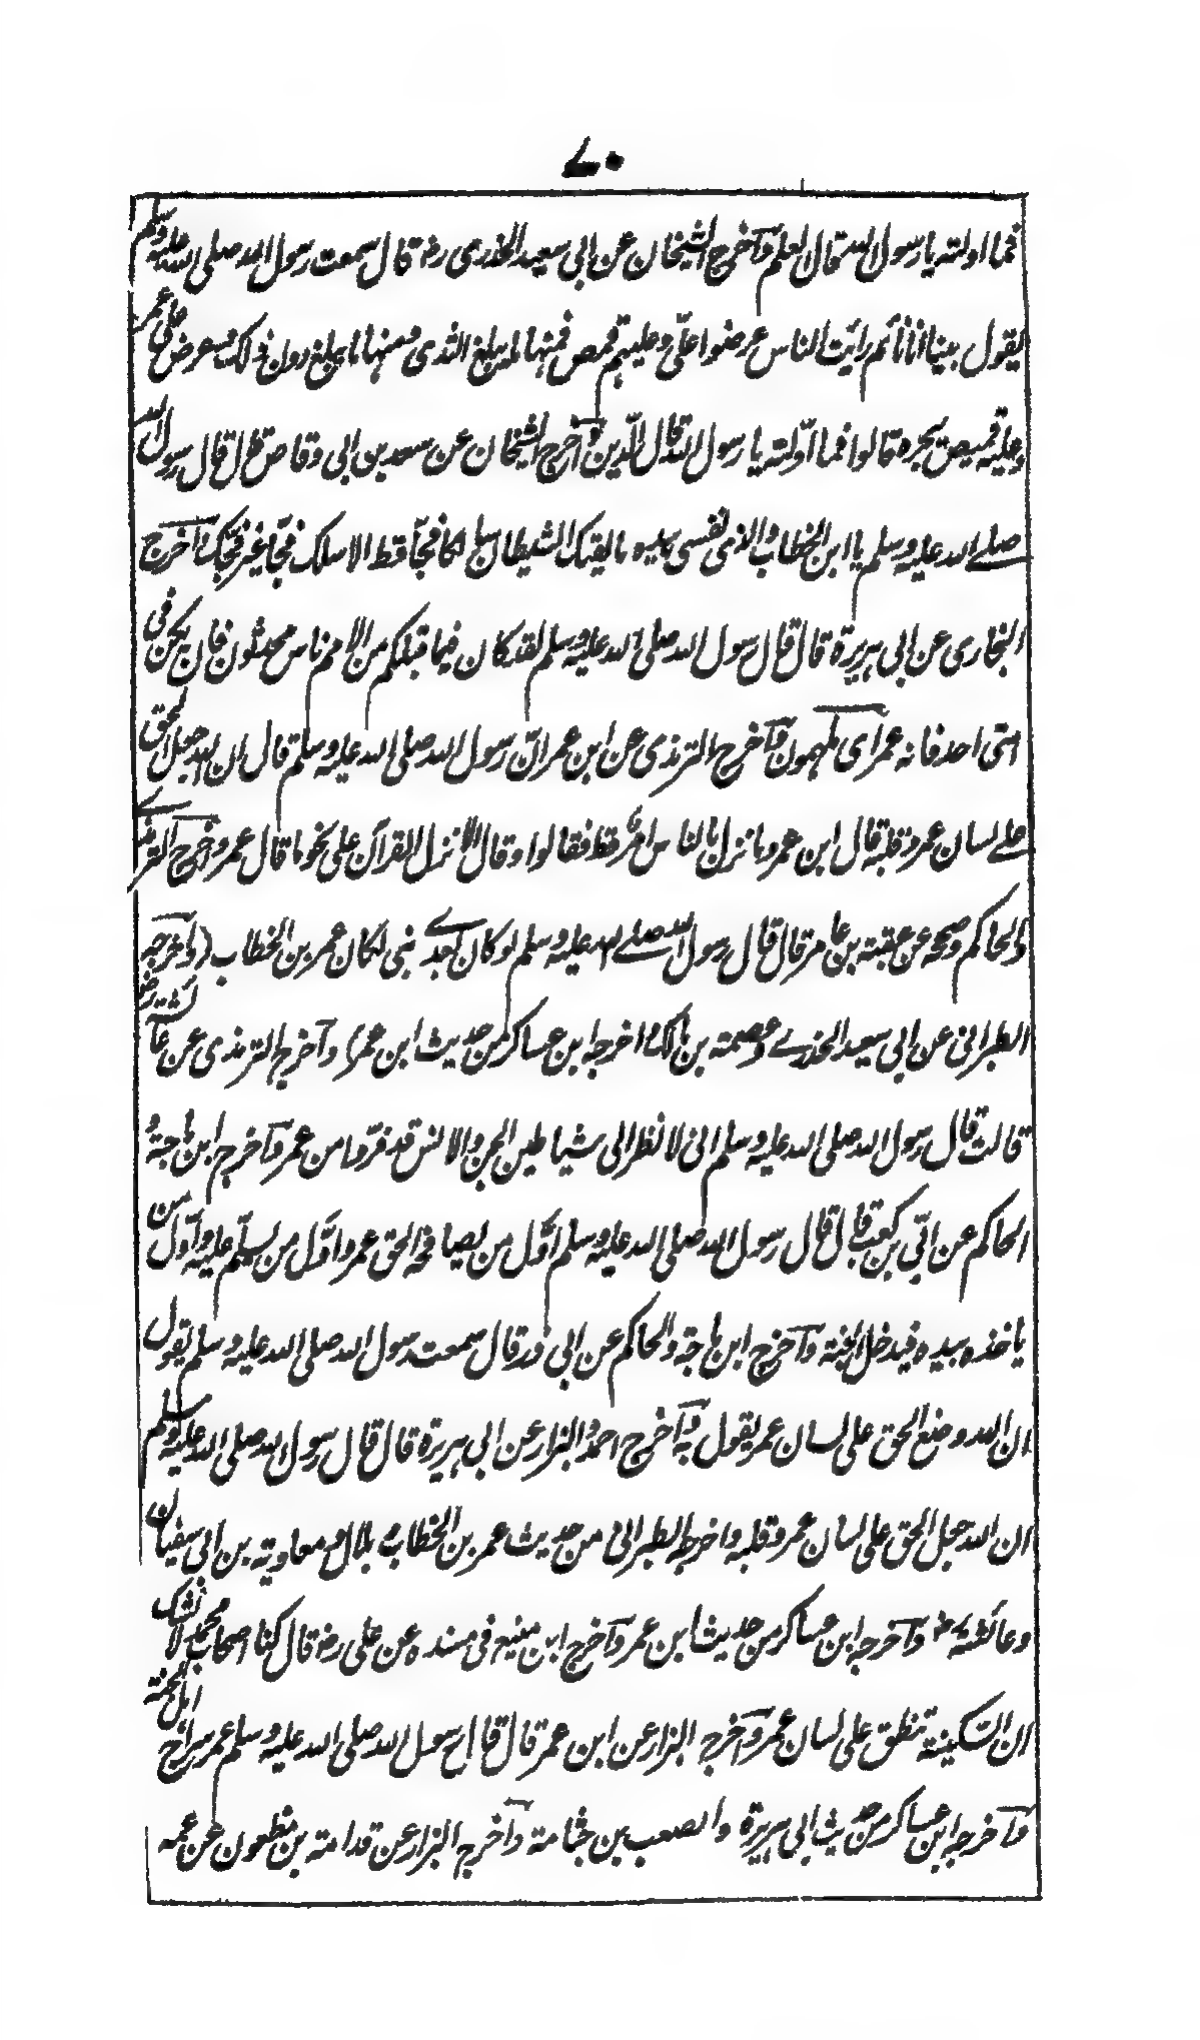 ۷۰
فما اولته يا رسول الله قال العلم وآخرج الشيخان عن ابی سعيد الخدری رضہ قال سمعت رسول الله صلی الله عليه وسلم
يقول بينا انا نائم رأيت الناس عرضوا علیّ وعليهم قمص فمنها ما يبلغ الثدی ومنها ما يبلغ دون ذلک وعرض علی عمر
وعليه قميص يجره قالوا فما اوّلته يا رسول الله قال الدين وآخرج الشيخان عن سعد بن ابی وقاص قال قال رسول الله
صلے الله عليه وسلم يا ابن الخطاب والذی نفسی بيده ما لقيک الشيطان سالکا فجّا قط الا سلک فجّا غير فجّک وآخرج
البخاری عن ابی هريرة قال قال رسول الله صلی الله عليه وسلم لقد کان فيما قبلکم من الامم ناس محدثون فان يکن فی
امتی احد فانه عمر ای ملهمون وآخرج الترمذی عن ابن عمر انّ رسول الله صلی الله عليه وسلم قال ان الله جعل الحق
علے لسان عمر وقلبه قال ابن عمر وما نزل بالناس امر قط فقالوا وقال الا نزل القرآن علی نحو ما قال عمر وآخرج الترمذے
والحاکم وصححه عن عقبة بن عامر قال قال رسول الله صلے الله عليه وسلم لو کان بعدے نبی لکان عمر بن الخطاب (وآخرجه
الطبرانی عن ابی سعيد الخدرے وعصمة بن مالک واخرجه ابن عساکر من حديث ابن عمر) وآخرج الترمذی عن عائشة رضہ
قالت قال رسول الله صلی الله عليه وسلم انی لانظر الی شياطين الجن والانس قد فرّوا من عمر وآخرج ابن ماجة و
الحاکم عن ابیّ بن کعب قال قال رسول الله صلی الله عليه وسلم اوّل من يصافحه الحق عمر واوّل من يسلّم عليه واوّل من
ياخذه بيده فيدخل الجنة وآخرج ابن ماجة والحاکم عن ابی ذر قال سمعت رسول الله صلی الله عليه وسلم يقول
ان الله وضع الحق علی لسان عمر يقول به وآخرج احمد والبزار عن ابی هريرة قال قال رسول الله صلی الله عليه وسلم
ان الله جعل الحق علی لسان عمر وقلبه واخرجه الطبرانی من حديث عمر بن الخطاب و بلال و معاوية بن ابی سفيان
وعائشة رضہ وآخرجه ابن عساکر من حديث ابن عمر وآخرج ابن منيع فی مسنده عن علی رضہ قال کنا اصحاب محمد لا نشک
ان السّکينة تنطق علی لسان عمر وآخرج البزار عن ابن عمر قال قال رسول الله صلی الله عليه وسلم عمر سراج اهل الجنة
وآخرجه ابن عساکر من حديث ابی هريرة والصعب بن جثامة وآخرج البزار عن قدامة بن مظعون عن عمه